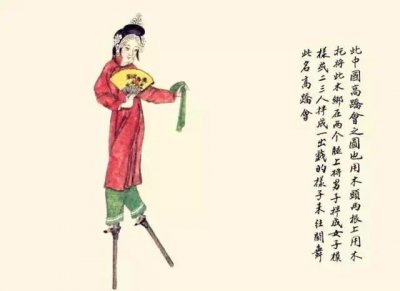 此中國高蹻會之圖也用木頭两根上用木
托将此木綁在两个腿上将男子拌成女子模
樣或二三人拌成一出戲的樣子来往鬪舞
此名高蹻會